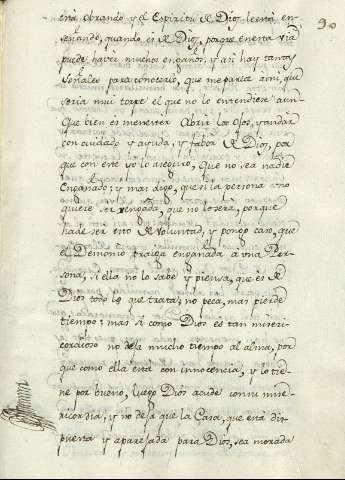 90
está obrando y el Espiritu de Dios le está en-
señando, quando es de Dios, porque en esta via
puede haver muchos engaños, y asi hay tantas
señales para conocerlo, que me parece á mi, que
seria mui torpe el que no lo entendiese aun-
Que bien es menester Abrir los Ojos, y andar
con cuidado y ayuda, y fabor de Dios, por
que con este yo lo aseguro, Que no sea nadie
Engañado; y mas digo, que si la persona no
quiere ser engañada, que no lo será, porque
ha de ser esto de Voluntad, y pongo caso, que
el Demonio traiga engañada a una Per-
sona, si ella no lo sabe y piensa, que es de
Dios todo lo que trata; no peca, mas pierde
tiempo; mas si como Dios es tan miseri-
cordioso no deja mucho tiempo al alma, por
que como ella está con innocencia, y lo tie-
ne por bueno, luego Dios acude con su mise-
ricordia, y no deja que la Casa, que está dis-
puesta y aparejada para Dios, sea morada